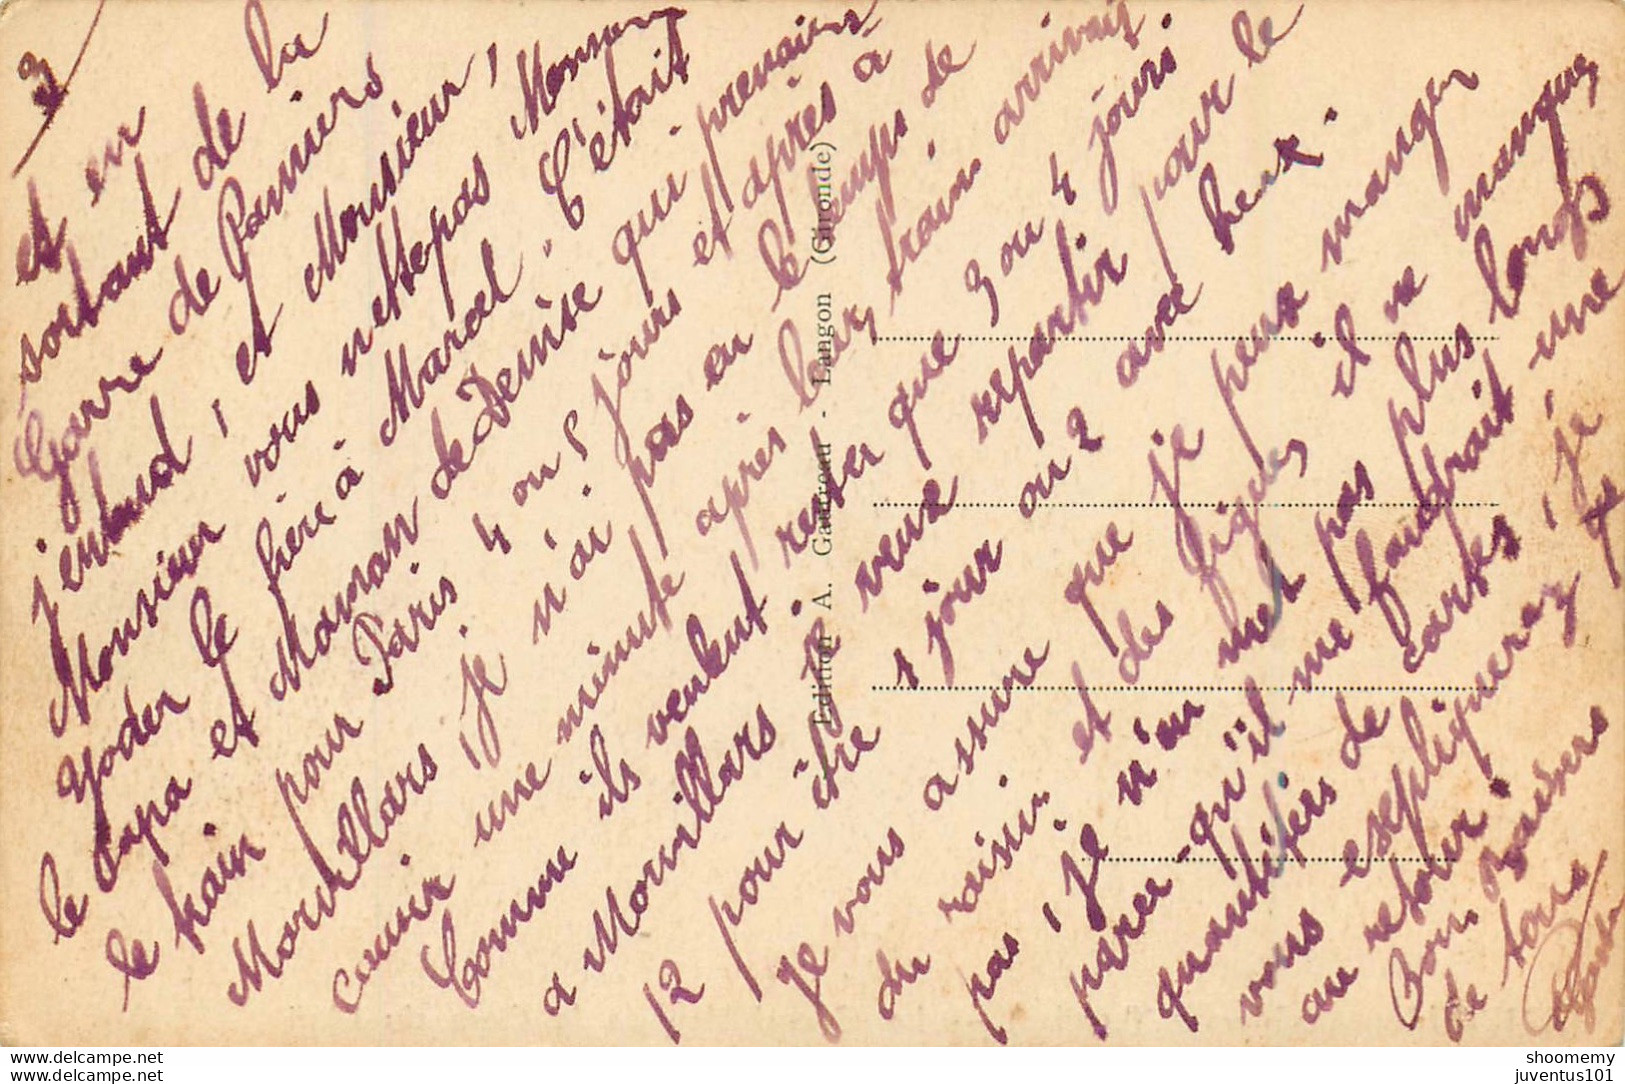 3
et en
sortant de la
Garre de Pamiers
j'entend, et Monsieur,
Monsieur vous nettepas Monsieur
Yoder le frère à Marcel, C'était
le Papa et Maman de Denise qui prenais
le train pour Paris 4 ou 5 jours et après à
Morvillars, je n'ai pas eu le temps de
courir une minute après leur train arrivait
Comme ils veulent rester que 3 ou 4 jours
a Morvillars je veux repartir pour le
12 pour être 1 jour ou 2 avec heux.
Je vous assure que je peux manger
du raisin et des figues il ne manque
pas, je n'en met pas plus longs
parce-qu'il me faudrait une
quantifers de cartes, je
vous espliquerez
au retour.
Bons Baisers
de tous
Edition A. Gautreau - Langon (Gironde)
shoomemy
juventus101
www.delcampe.net
www.delcampe.net